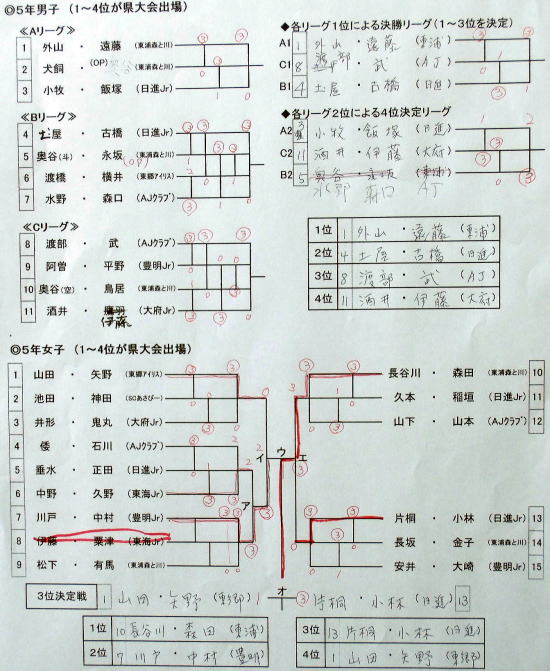 ◎5年男子 (1～4位が県大会出場)
≪Aリーグ≫
1 外山 ・ 遠藤 (東浦森と川)
2 犬飼 (OP) ・ (東浦森と川)
3 小牧 ・ 飯塚 (日進Jr)
≪Bリーグ≫
4 土屋 ・ 古橋 (日進Jr)
5 奥谷(斗) ・ 永坂 (東浦森と川) (OP)
6 渡橋 ・ 横井 (東郷アイリス)
7 水野 ・ 森口 (AJクラブ)
≪Cリーグ≫
8 渡部 ・ 武 (AJクラブ)
9 阿曽 ・ 平野 (豊明Jr)
10 奥谷(空) ・ 鳥居 (東浦森と川)
11 酒井 ・ 鷹羽 (大府Jr)
伊藤
◆各リーグ1位による決勝リーグ(1～3位を決定)
A1 1 外山 ・ 遠藤 (東浦)
C1 8 渡部 ・ 武 (AJ)
B1 4 土屋 ・ 古橋 (日進)
◆各リーグ2位による4位決定リーグ
A2 3 小牧 ・ 飯塚 (日進)
C2 11 酒井 ・ 伊藤 (大府)
B2 5 奥谷 ・ 永坂 (東浦)
水野 森口 AJ
1位 1 外山 ・ 遠藤 (東浦)
2位 4 土屋 ・ 古橋 (日進)
3位 8 渡部 ・ 武 (AJ)
4位 11 酒井 ・ 伊藤 (大府)
◎5年女子 (1～4位が県大会出場)
1 山田 ・ 矢野 (東郷アイリス)
2 池田 ・ 神田 (SCあさぴー)
3 井形 ・ 鬼丸 (大府Jr)
4 倭 ・ 石川 (AJクラブ)
5 垂水 ・ 正田 (日進Jr)
6 中野 ・ 久野 (東海Jr)
7 川戸 ・ 中村 (豊明Jr)
8 伊藤 ・ 粟津 (東海Jr)
9 松下 ・ 有馬 (東浦森と川)
長谷川 ・ 森田 (東浦森と川) 10
久本 ・ 稲垣 (日進Jr) 11
山下 ・ 山本 (AJクラブ) 12
片桐 ・ 小林 (日進Jr) 13
長坂 ・ 金子 (東浦森と川) 14
安井 ・ 大崎 (豊明Jr) 15
ア イ ウ エ オ
3位決定戦 1 山田 ・ 矢野 (東郷) 1 ③ 片桐 ・ 小林 (日進) 13
1位 10 長谷川 ・ 森田 (東浦)
2位 7 川戸 ・ 中村 (豊明)
3位 13 片桐 ・ 小林 (日進)
4位 1 山田 ・ 矢野 (東郷)